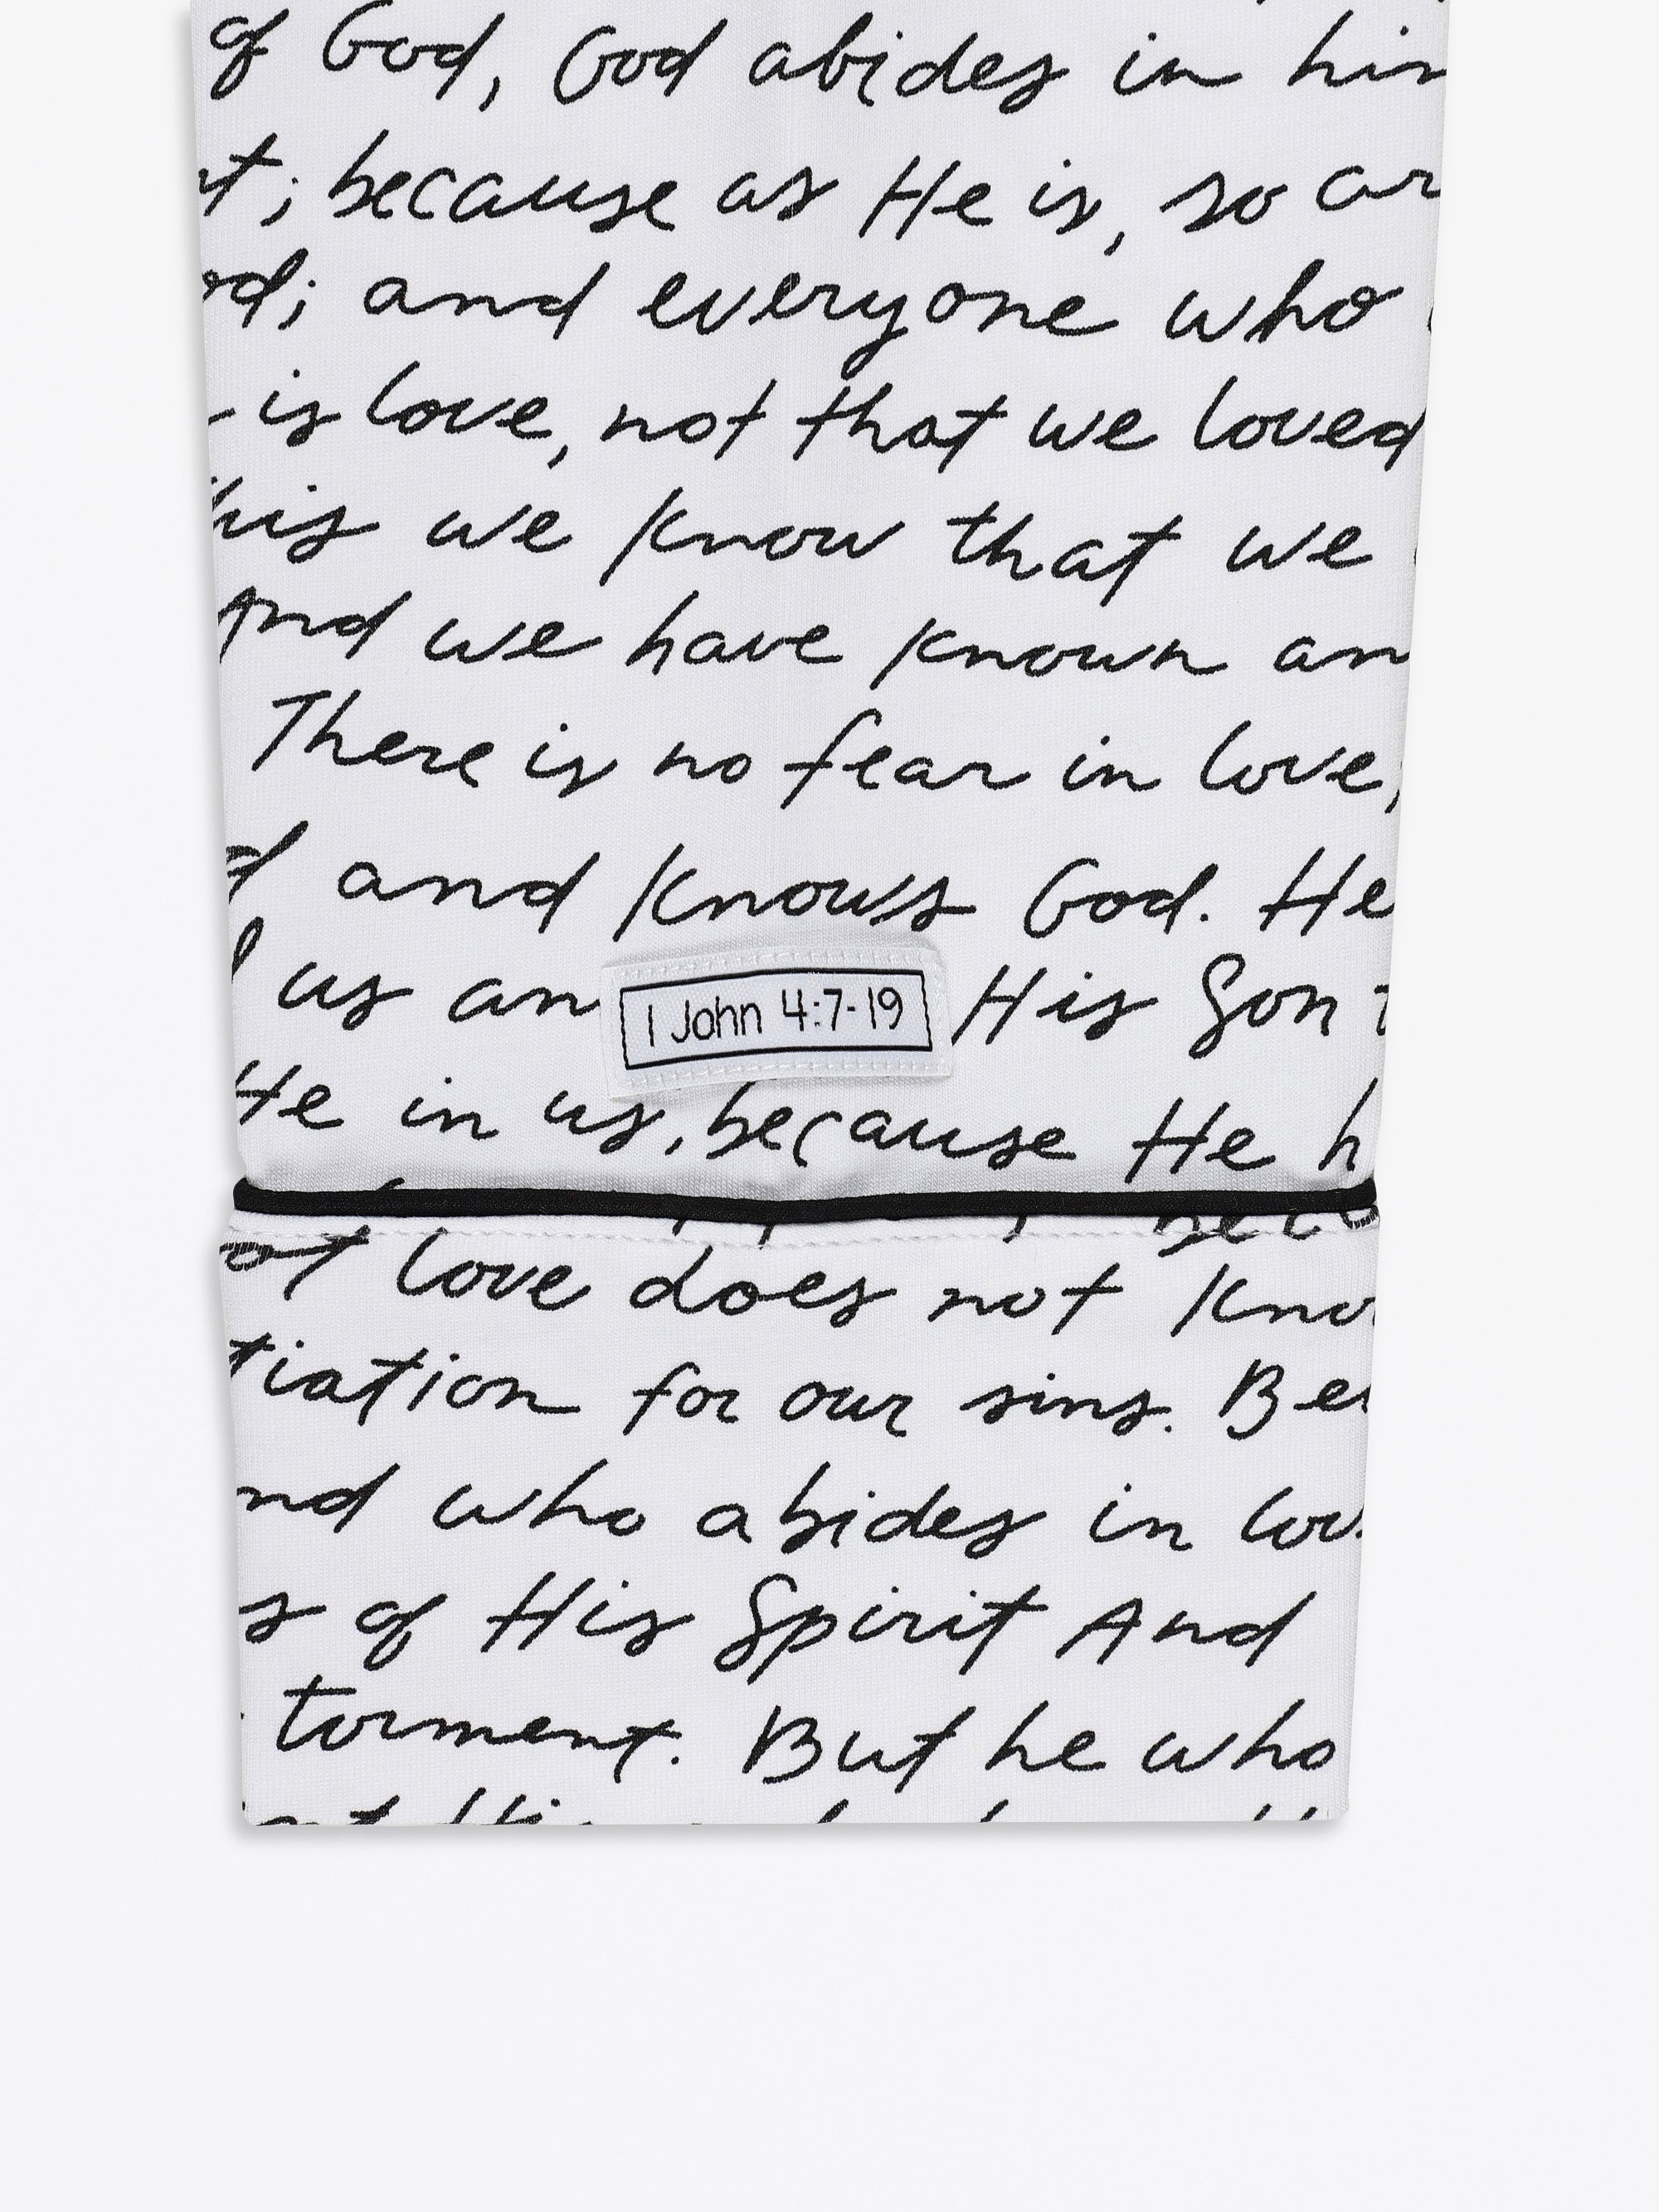 of God, God abides in him
; because as He is, so ar
; and everyone who
is love, not that we loved
his we know that we
And we have known an
There is no fear in love,
and knows God. He
us an
1 John 4:7-19
His Son
He in us, because He h
love does not kno
tiation for our sins. Be
nd who abides in lov
s of His Spirit And
torment. But he who